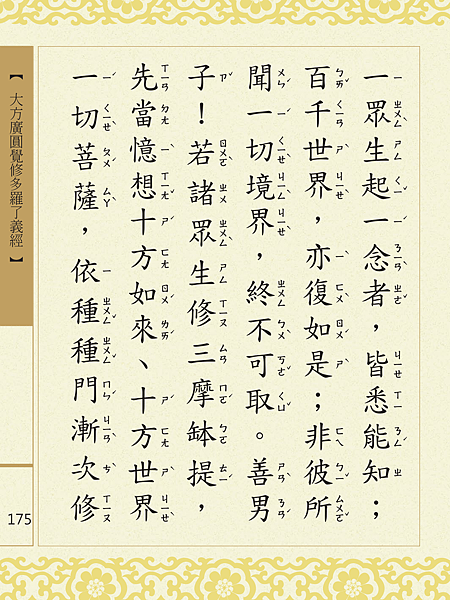 一眾生起一念者，皆悉能知；
百千世界，亦復如是；非彼所
聞一切境界，終不可取。善男
子！若諸眾生修三摩缽提，
先當憶想十方如來、十方世界
一切菩薩，依種種門漸次修
【大方廣圓覺修多羅了義經】
175